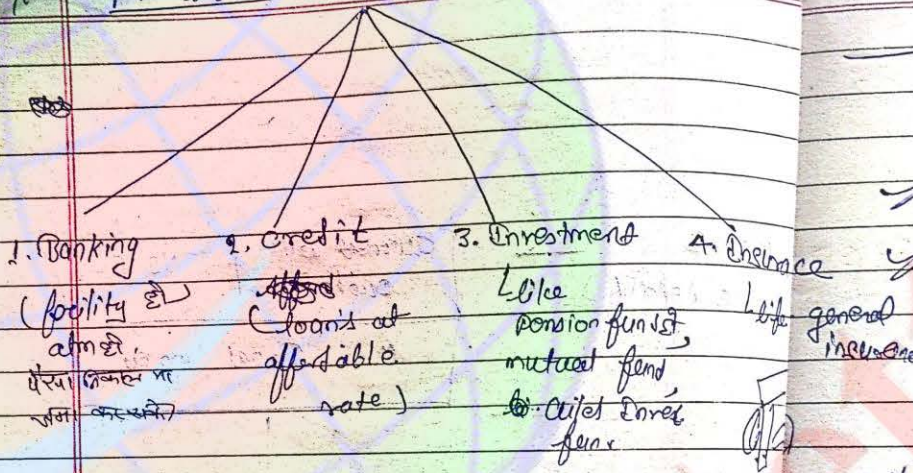 1. Banking
(facility हो
atm हो,
पैसा निकाल या
जमा कर सके)
2. Credit
(loan's at
affordable
rate)
3. Investment
like
pension funds,
mutual fund
4. Insurance
life general
insurance